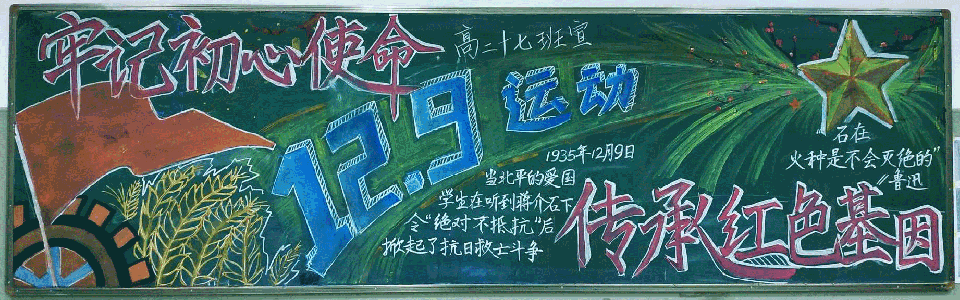 牢记初心使命
高二十七班宣
12.9运动
1935年12月9日
当北平的爱国
学生在听到蒋介石下
令“绝对不抵抗”后
掀起了抗日救亡斗争
石在
火种是不会灭绝的”
〃鲁迅
传承红色基因